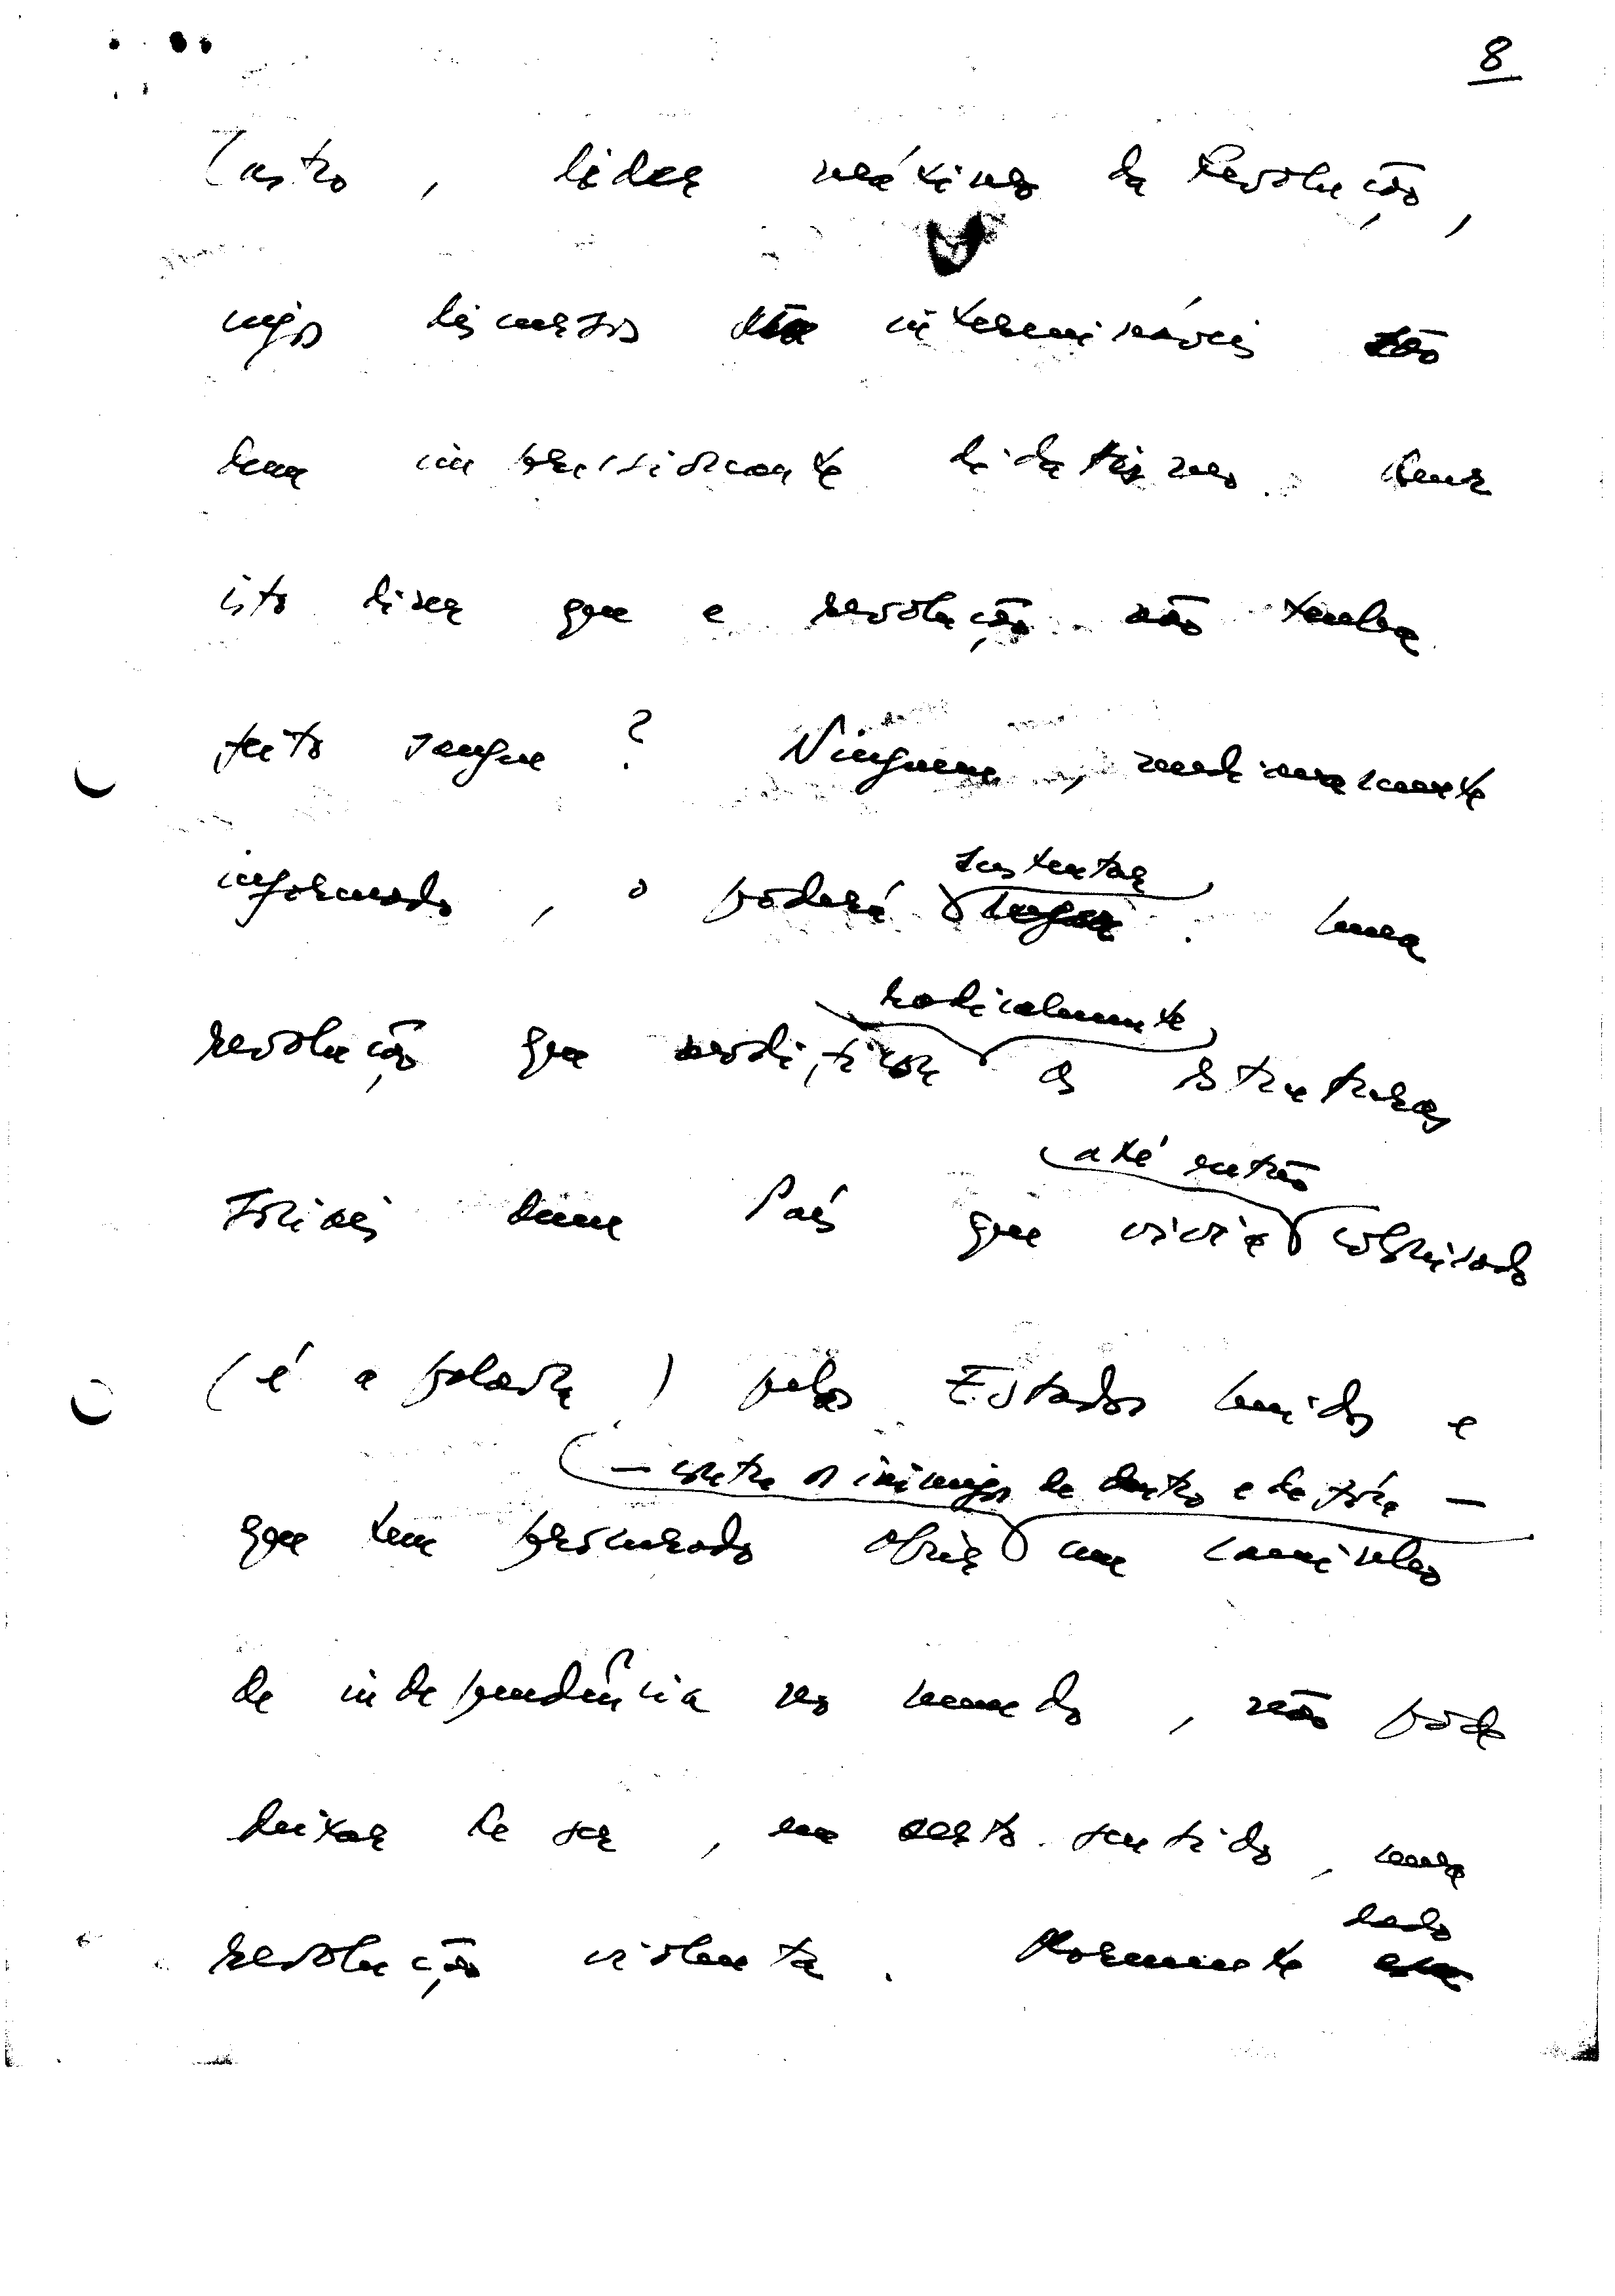 8
Castro, lider máximo da Revolução,
cujos discursos intermináveis são
dum impressionante didatismo. Quer
isto dizer que a revolução não tenha
feito sangue? Ninguem, medianamente
informado, o poderá sustentar. Uma
revolução que modifica radicalmente as estruturas
sociais dum País que vivia até então colonizado
(é a palavra) pelos Estados Unidos e
que tem procurado abrir — contra os inimigos de dentro e de fóra — um caminho
de independência no mundo, não pode
deixar de ser, em certo sentido, uma
revolução violenta. Mormente dado